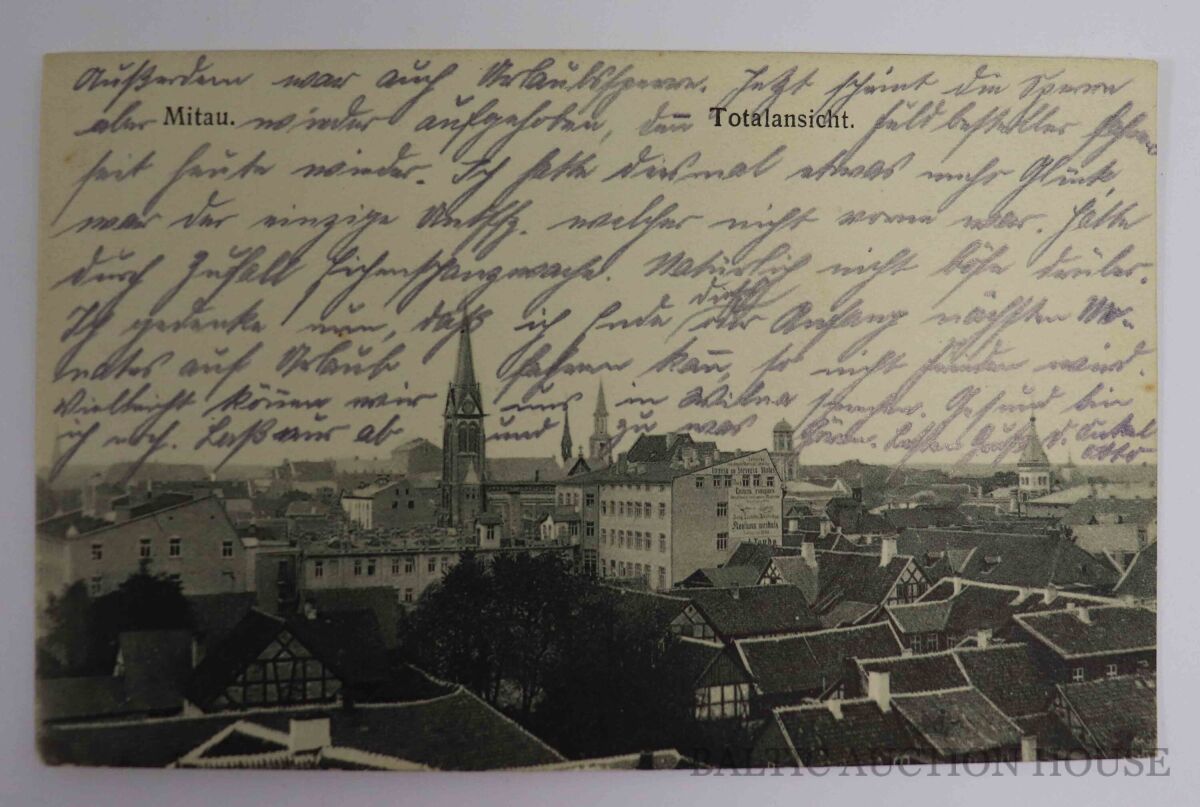 Außerdem war auch Urlaubssperre. Jetzt scheint die Sperre
aber wieder aufgehoben, denn Feldbesteller fahren
Mitau.
Totalansicht.
seit heute wieder. Ich hatte diesmal etwas mehr Glück,
war der einzige welcher nicht vorne war. Hatte
durch Zufall Natürlich nicht böse drüber.
Ich gedenke nun, daß ich Ende doch oder Anfang nächsten Mo-
nates auf Urlaub fahren kann, so nicht wird.
Vielleicht können wir uns in Wilna sprechen. Gesund bin
ich noch. Laß nur ab und zu was hören. Besten Gruß d. Onkel
Otto
BALTIC AUCTION HOUSE